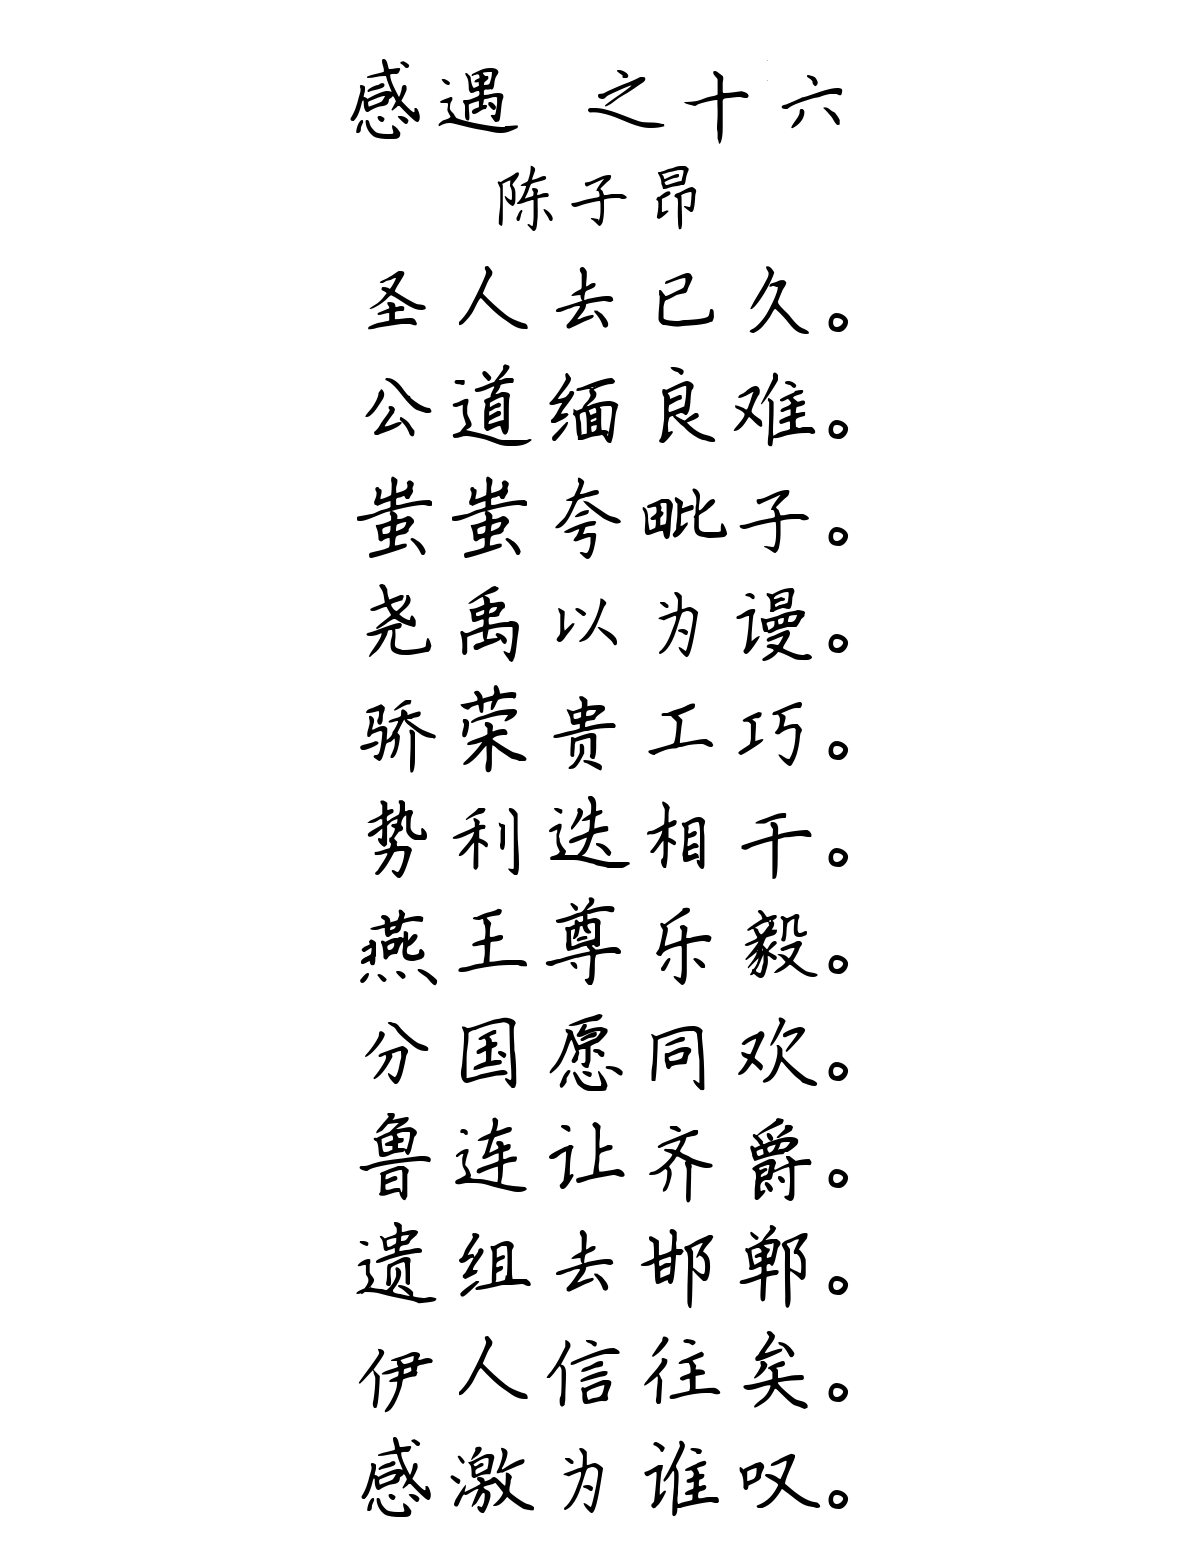 感遇 之十六
陈子昂
圣人去已久。
公道缅良难。
蚩蚩夸毗子。
尧禹以为谩。
骄荣贵工巧。
势利迭相干。
燕王尊乐毅。
分国愿同欢。
鲁连让齐爵。
遗组去邯郸。
伊人信往矣。
感激为谁叹。